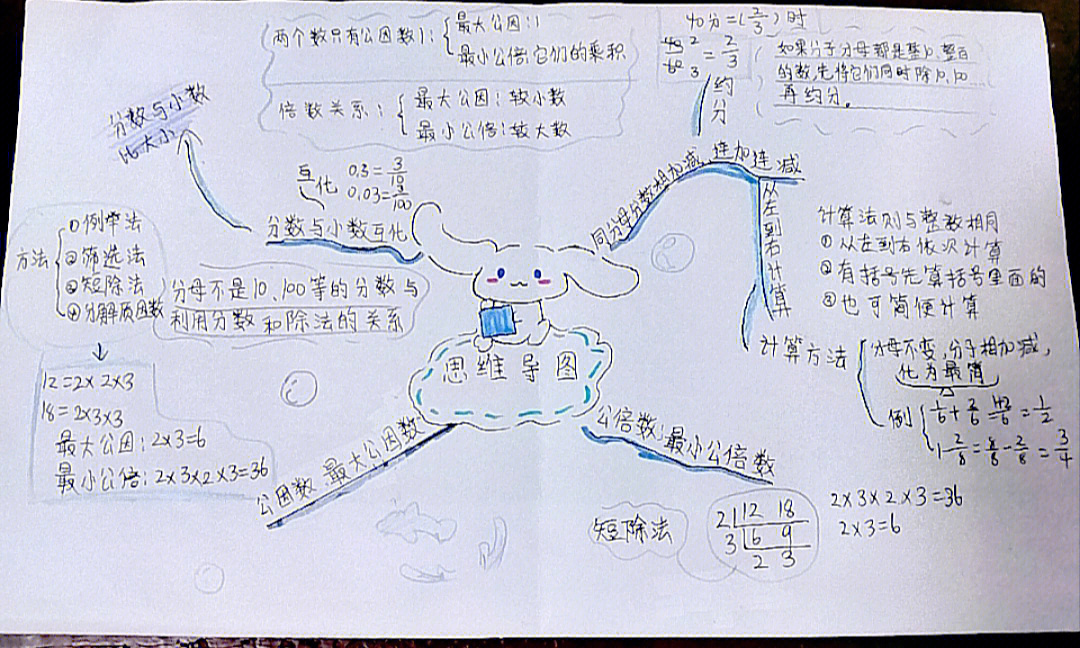 两个数只有公因数1：
最大公因：1
最小公倍：它们的乘积
倍数关系：
最大公因：较小数
最小公倍：较大数
40分=(2/3)时
40/60=2/3
2
3
如果分子分母都是整10、整百
的数，先将它们同时除10、100
再约分。
约分
分数与小数
比大小
互化
0.3=3/10
0.03=3/100
分数与小数互化
同分母分数相加减、连加连减
从左到右计算
计算法则与整数相同
①从左到右依次计算
②有括号先算括号里面的
③也可简便计算
方法
①例举法
②筛选法
③短除法
④分解质因数
分母不是10、100等的分数与
利用分数和除法的关系
计算方法
分母不变，分子相加减，
化为最简
例
1/6+2/6=1+2/6=1/2
1-2/8=8/8-2/8=3/4
思维导图
12=2×2×3
18=2×3×3
最大公因：2×3=6
最小公倍：2×3×2×3=36
公因数、最大公因数
公倍数：最小公倍数
短除法
2 12 18
3 6 9
2 3
2×3×2×3=36
2×3=6